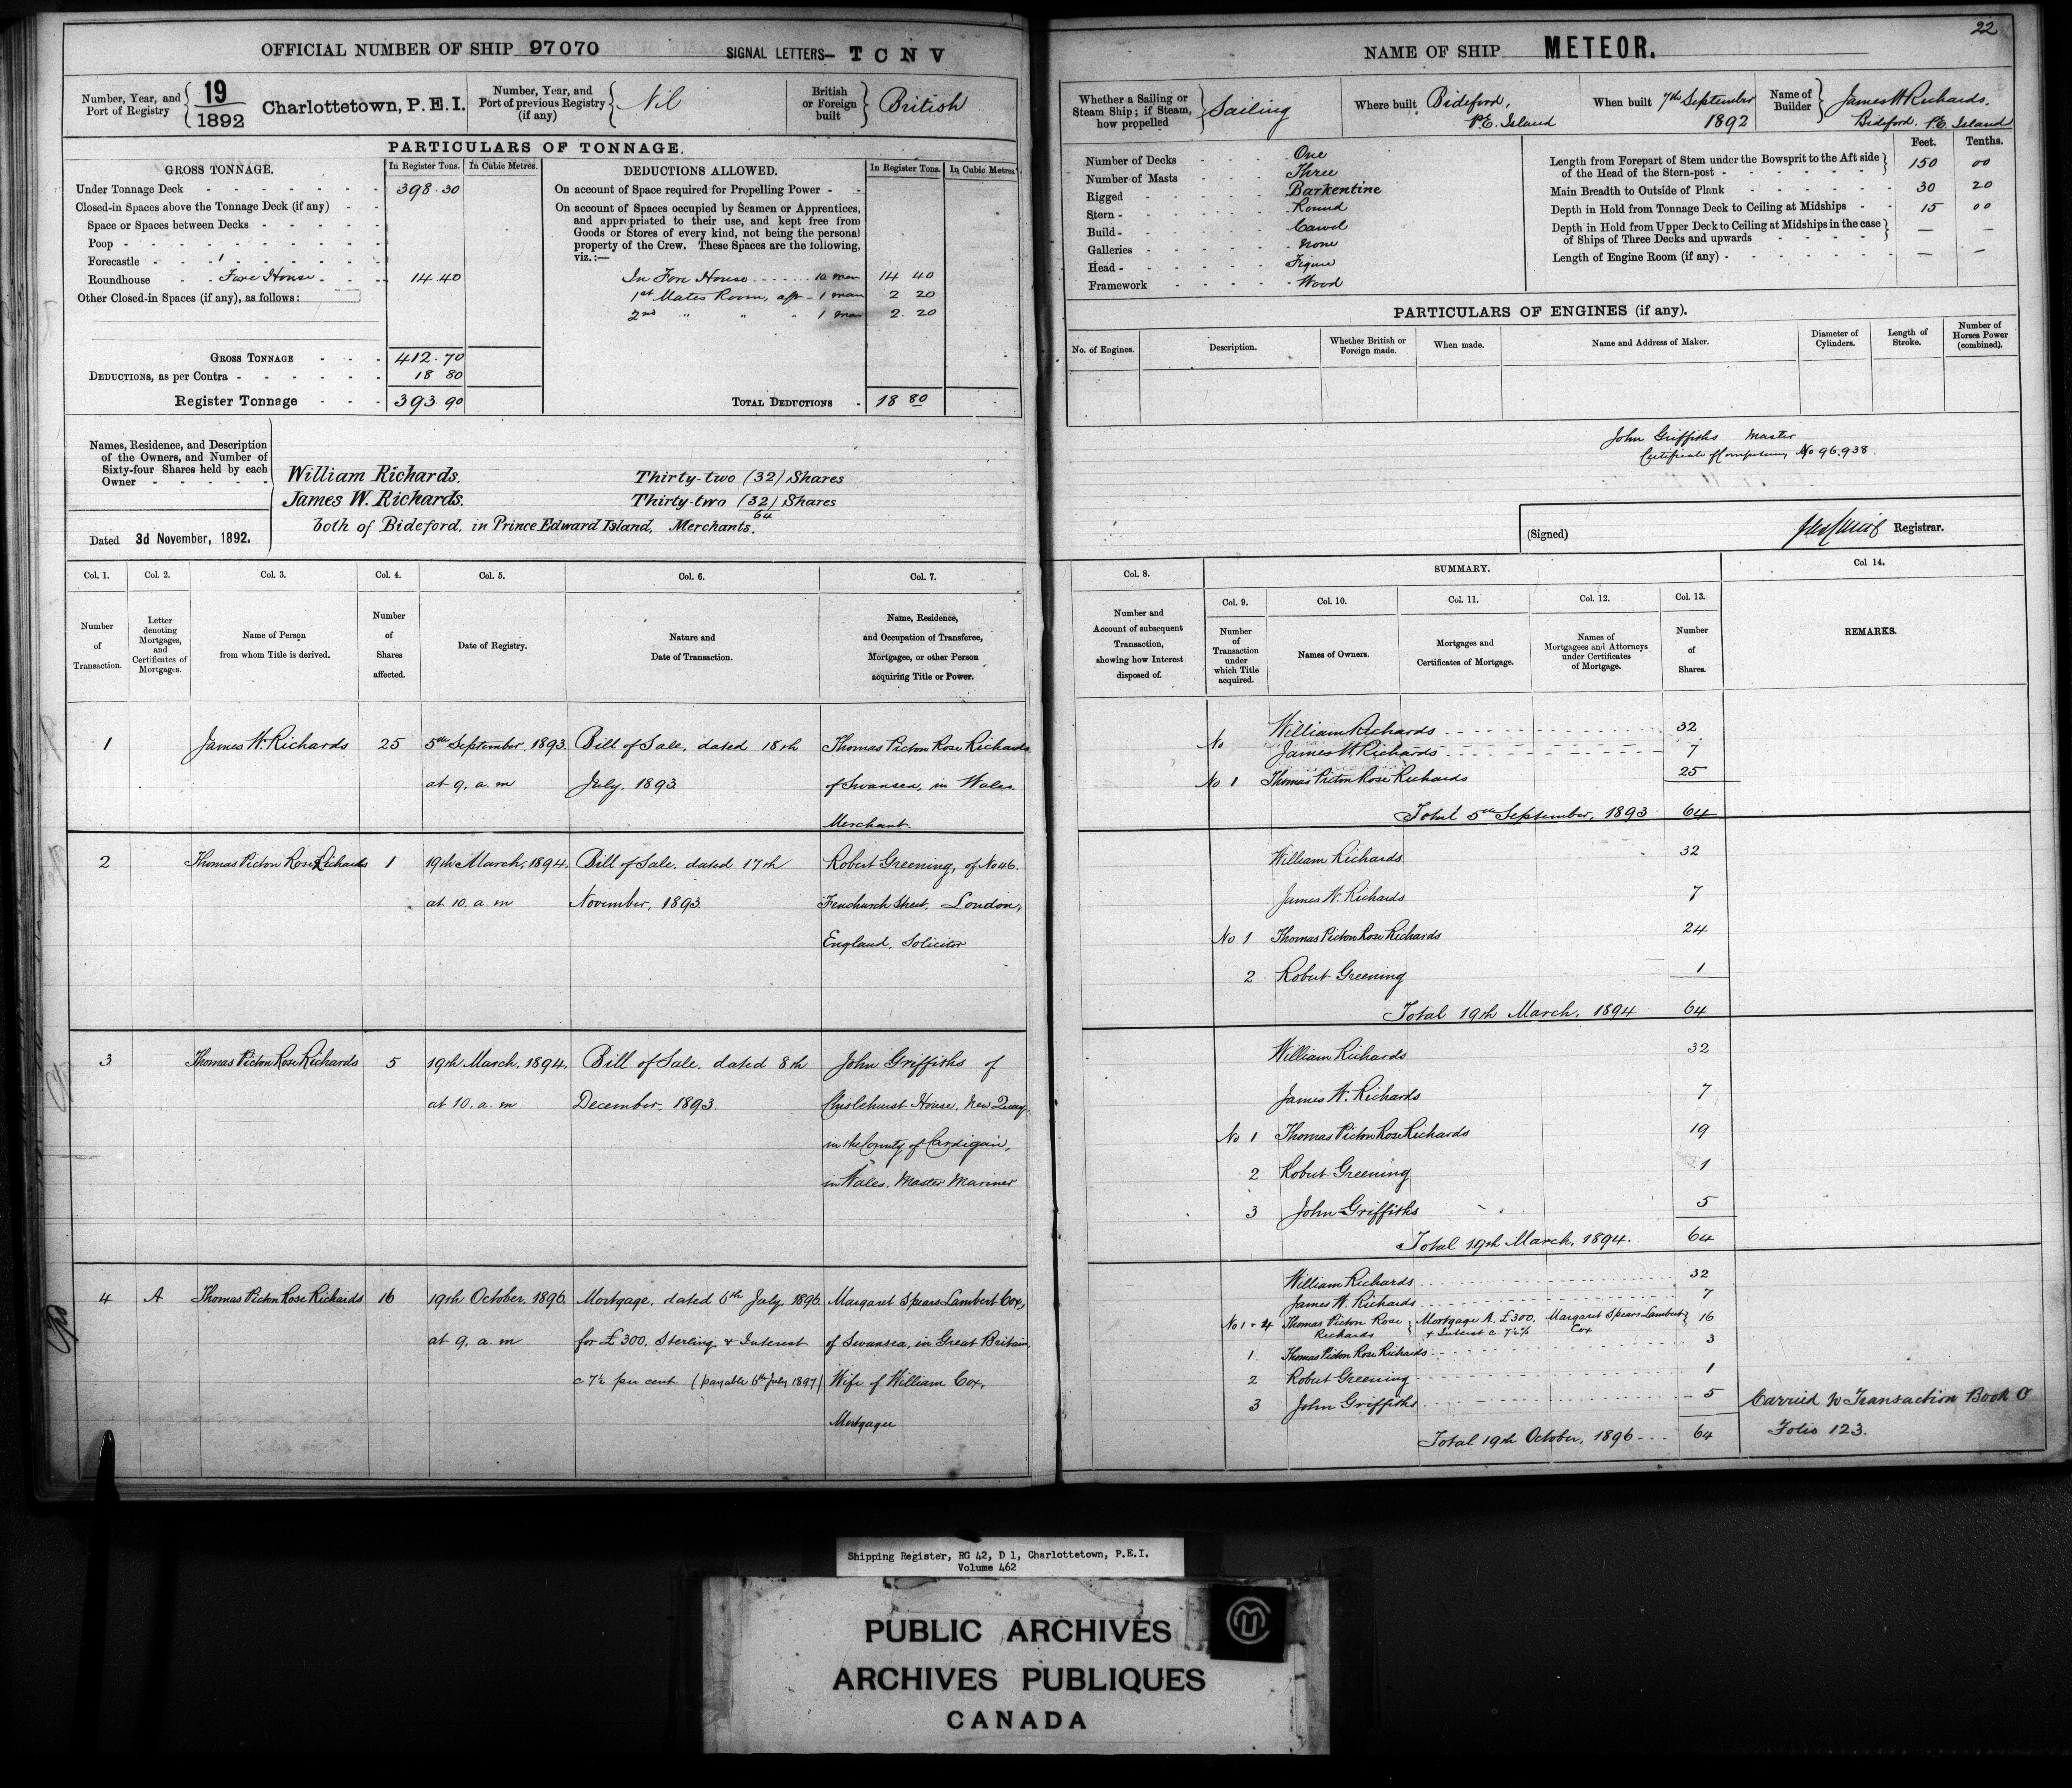 OFFICIAL NUMBER OF SHIP 97070 SIGNAL LETTERS— T C N V
Number, Year, and Port of Registry { 19/1892 Charlottetown, P.E.I.
Number, Year, and Port of previous Registry (if any) { Nil
British or Foreign built } British
PARTICULARS OF TONNAGE.
GROSS TONNAGE. In Register Tons. In Cubic Metres.
Under Tonnage Deck 398.30
Closed-in Spaces above the Tonnage Deck (if any)
Space or Spaces between Decks
Poop
Forecastle
Roundhouse Fore House 14.40
Other Closed-in Spaces (if any), as follows:
GROSS TONNAGE 412.70
DEDUCTIONS, as per Contra 18 80
Register Tonnage 393.90
DEDUCTIONS ALLOWED. In Register Tons. In Cubic Metres.
On account of Space required for Propelling Power
On account of Spaces occupied by Seamen or Apprentices,
and appropriated to their use, and kept free from
Goods or Stores of every kind, not being the personal
property of the Crew. These Spaces are the following,
viz.:—
In Fore House 10 men 14 40
1st Mates Room, aft 1 man 2 20
2nd " " " 1 man 2.20
TOTAL DEDUCTIONS 18 80
Names, Residence, and Description
of the Owners, and Number of
Sixty-four Shares held by each
Owner
William Richards. Thirty-two (32) Shares
James W. Richards. Thirty-two (32) Shares
64
both of Bideford, in Prince Edward Island, Merchants.
Dated 3d November, 1892.
Col. 1. Col. 2. Col. 3. Col. 4. Col. 5. Col. 6. Col. 7.
Number of Transaction.
Letter denoting Mortgages, and Certificates of Mortgages.
Name of Person from whom Title is derived.
Number of Shares affected.
Date of Registry.
Nature and Date of Transaction.
Name, Residence, and Occupation of Transferee, Mortgagee, or other Person acquiring Title or Power.
1 James W. Richards 25 5th September, 1893. Bill of Sale, dated 18th Thomas Picton Rose Richards
at 9. a. m July. 1893 of Swansea, in Wales.
Merchant.
2 Thomas Picton Rose Richards 1 19th March, 1894. Bill of Sale. dated 17th Robert Greening, of No 46.
at 10. a. m November, 1893. Fenchurch Street. London,
England. Solicitor
3 Thomas Picton Rose Richards 5 19th March, 1894. Bill of Sale. dated 8th John Griffiths of
at 10. a. m December. 1893. Chislehurst House. New Quay
in the County of Cardigan,
in Wales. Master Mariner
4 A Thomas Picton Rose Richards 16 19th October, 1896. Mortgage, dated 6th July 1896 Margaret Spears Lambert Cox,
at 9. a. m for £300. Sterling & Interest of Swansea, in Great Britain,
c 7½ per cent (payable 6th July 1897) Wife of William Cox,
Mortgagee
22
NAME OF SHIP METEOR.
Whether a Sailing or Steam Ship; if Steam, how propelled } Sailing
Where built Bideford, P.E. Island
When built 7th September 1892
Name of Builder } James W Richards. Bideford. P.E. Island
Number of Decks One
Number of Masts Three
Rigged Barkentine
Stern Round
Build Carvel
Galleries None
Head Figure
Framework Wood
Feet. Tenths.
Length from Forepart of Stem under the Bowsprit to the Aft side
of the Head of the Stern-post 150 00
Main Breadth to Outside of Plank 30 20
Depth in Hold from Tonnage Deck to Ceiling at Midships 15 00
Depth in Hold from Upper Deck to Ceiling at Midships in the case
of Ships of Three Decks and upwards — —
Length of Engine Room (if any) — —
PARTICULARS OF ENGINES (if any).
No. of Engines. Description. Whether British or Foreign made. When made. Name and Address of Maker. Diameter of Cylinders. Length of Stroke. Number of Horses Power (combined).
John Griffiths Master
Certificate of Competency No 96.938.
(Signed) Registrar.
Col. 8. SUMMARY. Col 14.
Col. 9. Col. 10. Col. 11. Col. 12. Col. 13.
Number and Account of subsequent Transaction, showing how Interest disposed of.
Number of Transaction under which Title acquired.
Names of Owners.
Mortgages and Certificates of Mortgage.
Names of Mortgagees and Attorneys under Certificates of Mortgage.
Number of Shares.
REMARKS.
William Richards 32
No James W Richards 7
No 1 Thomas Picton Rose Richards 25
Total 5th September, 1893 64
William Richards 32
James W. Richards 7
No 1 Thomas Picton Rose Richards 24
2 Robert Greening 1
Total 19th March, 1894 64
William Richards 32
James W. Richards 7
No 1 Thomas Picton Rose Richards 19
2 Robert Greening 1
3 John Griffiths 5
Total 19th March, 1894. 64
William Richards 32
James W. Richards 7
No 1 & 4 Thomas Picton Rose Richards } Mortgage A. £300. & Interest c 7½% Margaret Spears Lambert Cox } 16
1. Thomas Picton Rose Richards 3
2 Robert Greening 1
3 John Griffiths 5 Carried to Transaction Book O
Total 19th October, 1896 64 Folio 123.
Shipping Register, RG 42, D 1, Charlottetown, P.E.I.
Volume 462
PUBLIC ARCHIVES
ARCHIVES PUBLIQUES
CANADA